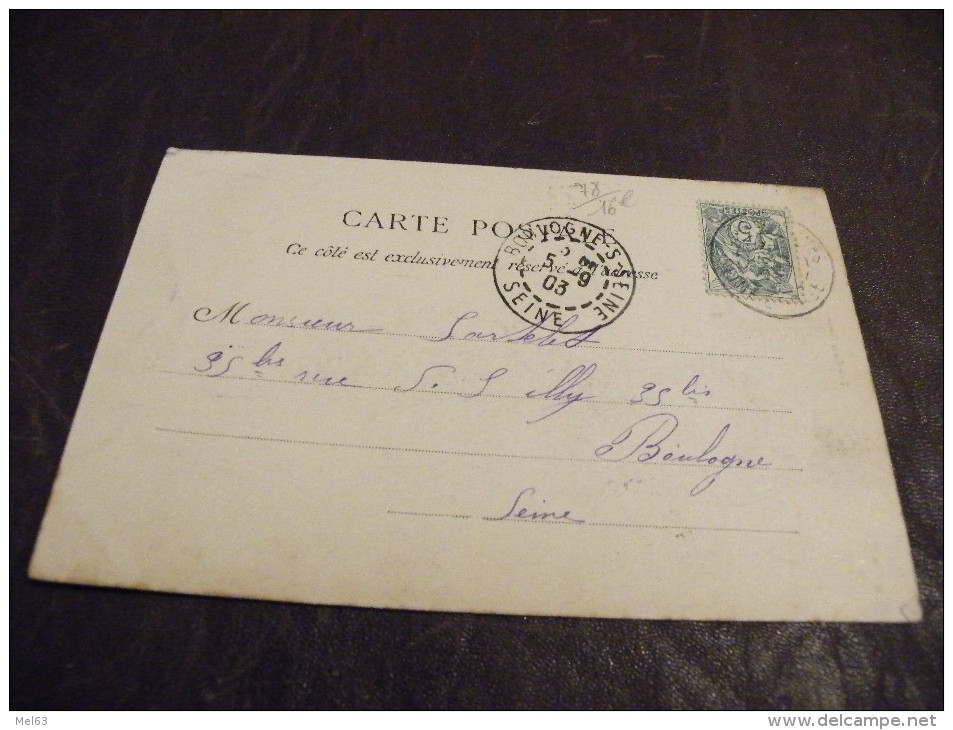 78
16
CARTE POSTALE
Ce côté est exclusivement réservé à l'adresse
BOULOGNE-S-SEINE
5 - 9
03
SEINE
POSTES
Monsieur
35 bis rue de Silly 35 bis
Boulogne
Seine
Mel63
www.delcampe.net